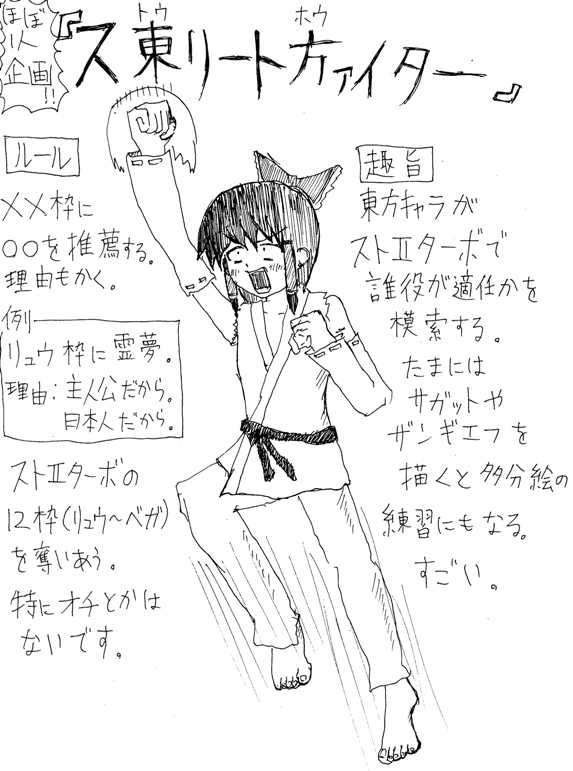 ほぼ
1人
企画
!!
トウ ホウ
『ス東リート方ァイター』
ルール
××枠に
○○を推薦する。
理由もかく。
例
リュウ枠に霊夢。
理由：主人公だから。
日本人だから。
ストⅡターボの
12枠(リュウ～ベガ)
を奪いあう。
特にオチとかは
ないです。
趣旨
東方キャラが
ストⅡターボで
誰役が適任かを
模索する。
たまには
サガットや
ザンギエフを
描くと多分絵の
練習にもなる。
すごい。